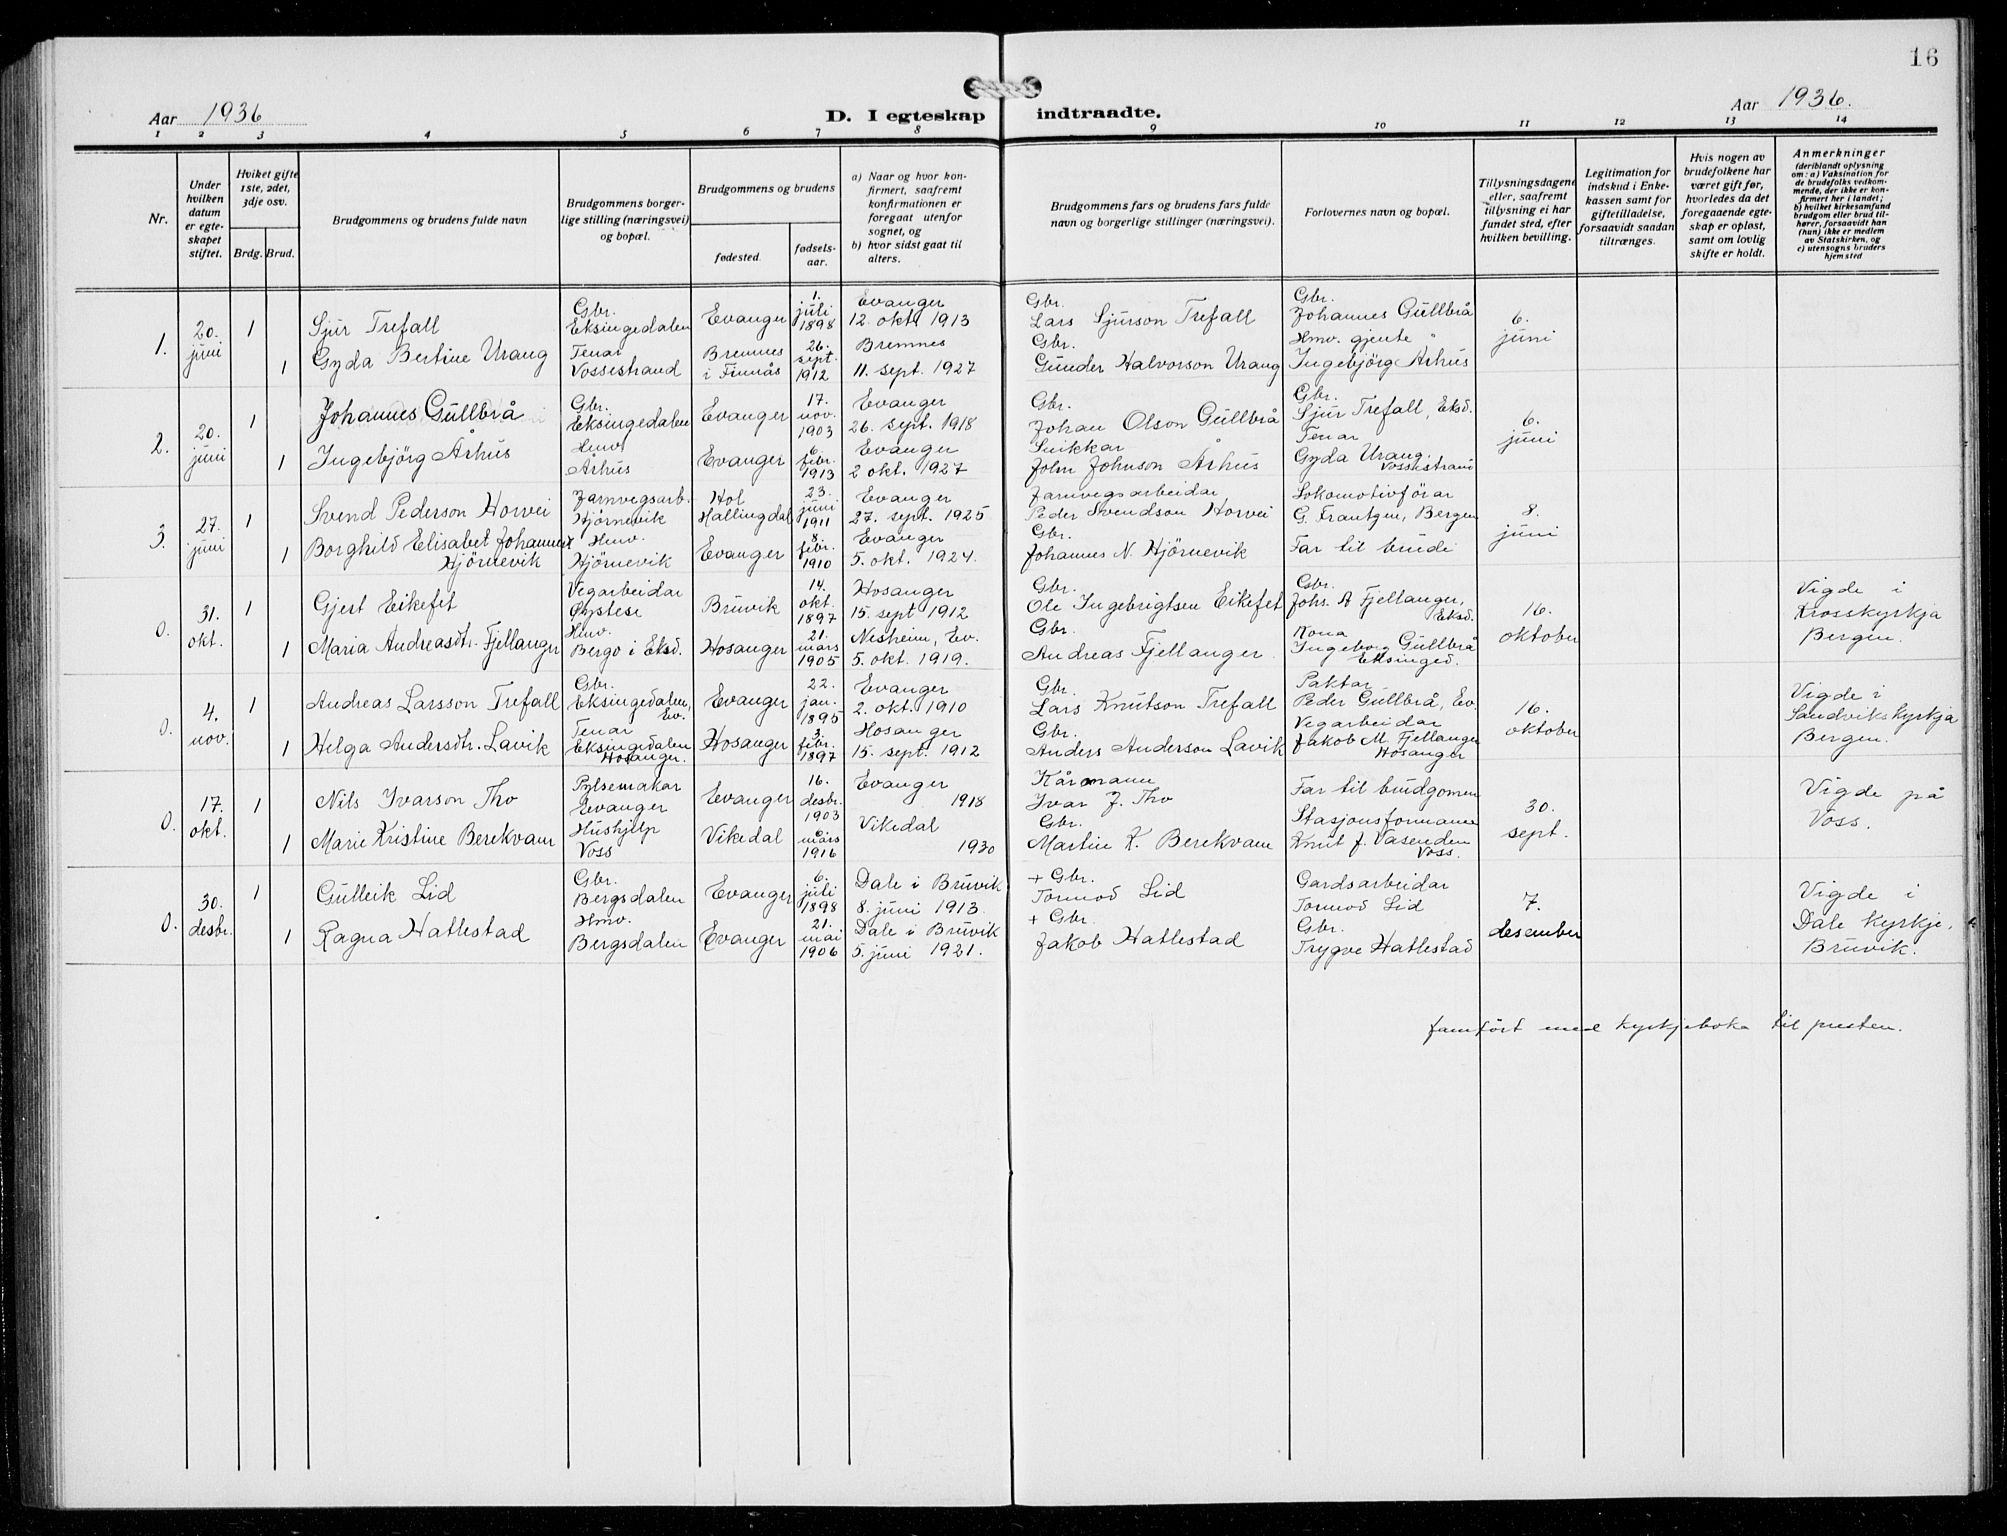 16
Aar 1936
D. I egteskap indtraadte.
Aar 1936.
1 2 3 4 5 6 7 8 9 10 11 12 13 14
Nr.
Under hvilken datum er egteskapet stiftet.
Hviket gifte 1ste, 2det, 3dje osv.
Brdg. Brud.
Brudgommens og brudens fulde navn
Brudgommens borgerlige stilling (næringsvei) og bopæl.
Brudgommens og brudens
fødested.
fødselsaar.
a) Naar og hvor konfirmert, saafremt konfirmationen er foregaat utenfor sognet, og
b) hvor sidst gaat til alters.
Brudgommens fars og brudens fars fulde navn og borgerlige stillinger (næringsvei).
Forlovernes navn og bopæl.
Tillysningsdagene eller, saafremt tillysning ei har fundet sted, efter hvilken bevilling.
Legitimation for indskud i Enkekassen samt for giftetilladelse, forsaavidt saadan tiltrænges.
Hvis nogen av brudefolkene har været gift før, hvorledes da det foregaaende egteskap er opløst, samt om lovlig skifte er holdt.
Anmerkninger
(deriblandt oplysning om: a) Vaksination for de brudefolks vedkommende, der ikke er konfirmert her i landet; b) hvilket kirkesamfund brudgom eller brud tilhører, forsaavidt han (hun) ikke er medlem av Statskirken, og c) utensogns bruders hjemsted
1. 20. juni 1 Sjur Trefall Gbr. Eksingedalen Evanger 1. juli 1898 Evanger 12. okt. 1913 Gbr. Lars Sjurson Trefall Gbr. Johannes Gullbrå 6. juni
1 Gyda Bertine Urang Tenar Vossestrand Bremnes i Finnås 26. sept. 1912 Bremnes 11. sept. 1927 Gbr. Gunder Halvorson Urang Hmv. gjente " Ingebjörg Århus
2. 20. juni 1 Johannes Gullbrå Gbr. Eksingedalen Evanger 17. nov. 1903 Evanger 26. sept. 1918 Gbr. Johan Olson Gullbrå Gbr. Sjur Trefall, Eksd. 6. juni
1 Ingebjörg Århus Hmv. Århus Evanger 6. febr. 1913 Evanger 2 okt. 1927 Snikkar John Johnson Århus Tenar Gyda Urang. Vossestrand
3. 27. juni 1 Svend Pederson Horvei Jarnvegsarb. Hjörnevik Hol Hallingdal 23. juni 1911 Evanger 27. sept. 1925 Jarnvegsarbeidar Peder Svendson Horvei Lokomotivförar G. Frantzen, Bergen 8. juni
1 Borghild Elisabet Johannesd. Hjörnevik Hmv. Hjörnevik Evanger 8. febr. 1910 Evanger 5. okt. 1924. Gbr. Johannes N. Hjörnevik Far til brudi
0. 31. okt. 1 Gjert Eikefet Vegarbeidar Øystese Bruvik 14. okt. 1897 Hosanger 15. sept 1912 Gbr. Ole Ingebrigtsen Eikefet Gbr. Johs. A Fjellanger, Eksd. 16. oktober Vigde i Krosskyrkja Bergen.
1 Maria Andreasdtr. Fjellanger Hmv. Bergo i Eksd. Hosanger 21. mars 1905 Nesheim, Ev. 5. okt. 1919. Gbr. Andreas Fjellanger Kona Ingeborg Gullbrå Eksinged.
0. 4. nov. 1 Andreas Larsson Trefall Gbr. Eksingedalen, Ev. Evanger 22. jan. 1895 Evanger 2. okt. 1910 Gbr. Lars Knutson Trefall Paktar Peder Gullbrå, Ev. 16. oktober Vigde i Sandvikskyrkja Bergen.
1 Helga Andersdtr. Lavik Tenar Eksingedalen Hosanger. Hosanger 3. febr. 1897 Hosanger 15. sept. 1912 Gbr. Anders Anderson Lavik Vegarbeidar Jakob M. Fjellanger Hosanger
0. 17. okt. 1 Nils Ivarson Tho Pylsemakar Evanger Evanger 16. desbr. 1903 Evanger 1918 Kårmann Ivar J. Tho Far til brudgomen 30. sept. Vigde på Voss.
1 Marie Kristine Berekvam Hushjelp Voss Vikedal 6. mars 1916 Vikedal 1930 Gbr. Martin K. Berekvam Stasjonsformann Knut J. Vasenden Voss.
0. 30. desbr. 1 Gulleik Lid Gbr. Bergsdalen Evanger 6. juli 1898 Dale i Bruvik 8. juni 1913. + Gbr. Tormod Lid Gardsarbeidar Tormod Lid 7. desember Vigde i Dale kyrkje, Bruvik.
1 Ragna Hatlestad Hmv. Bergsdalen Evanger 21. mai 1906 Dale i Bruvik 5. juni 1921. + Gbr. Jakob Hatlestad Gbr. Trygve Hatlestad
Jamfört med kyrkjeboka til presten.